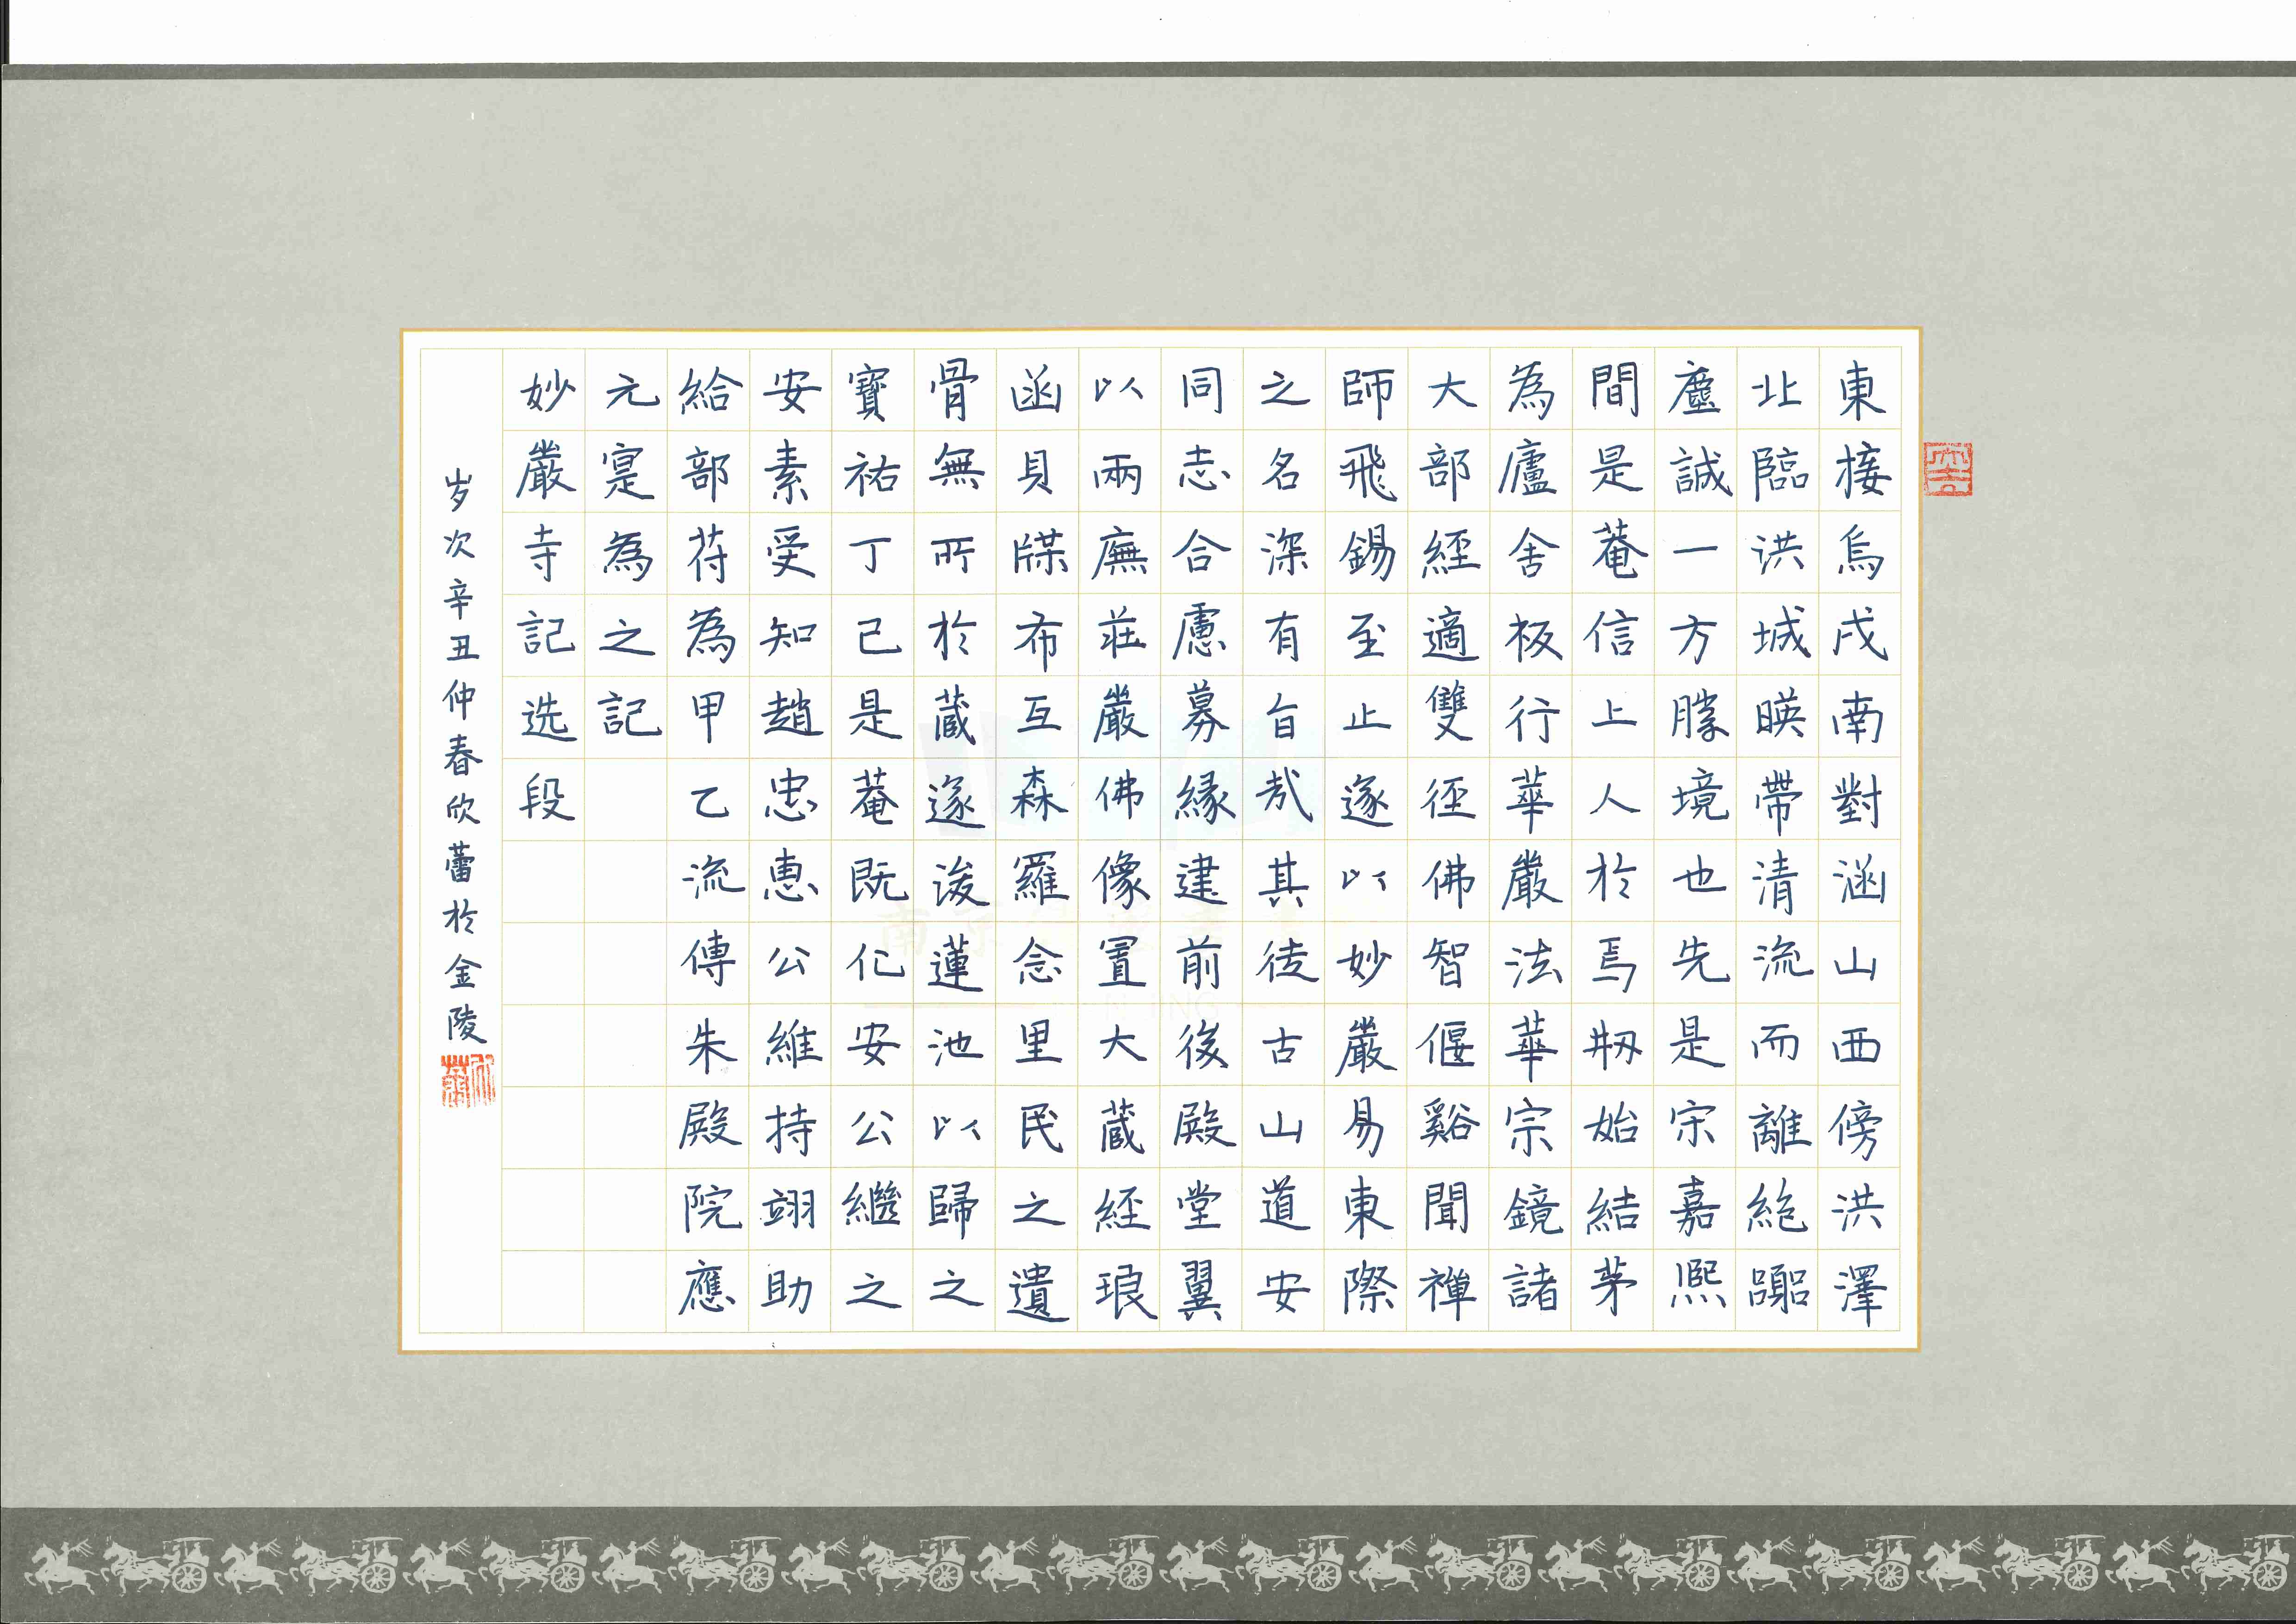 東接烏戌南對涵山西傍洪澤
北臨洪城映帶清流而離絕囂
塵誠一方勝境也先是宋嘉熙
間是菴信上人於焉刱始結茅
為廬舍板行華嚴法華宗鏡諸
大部經適雙徑佛智偃谿聞禪
師飛錫至止遂以妙嚴易東際
之名深有旨哉其徒古山道安
同志合慮募緣建前後殿堂翼
以兩廡莊嚴佛像置大藏經琅
函貝牒布互森羅念里民之遺
骨無所於藏遂浚蓮池以歸之
寶祐丁巳是菴既化安公繼之
安素受知趙忠惠公維持翊助
給部苻為甲乙流傳朱殿院應
元寔為之記
妙嚴寺記选段
岁次辛丑仲春欣蕾於金陵